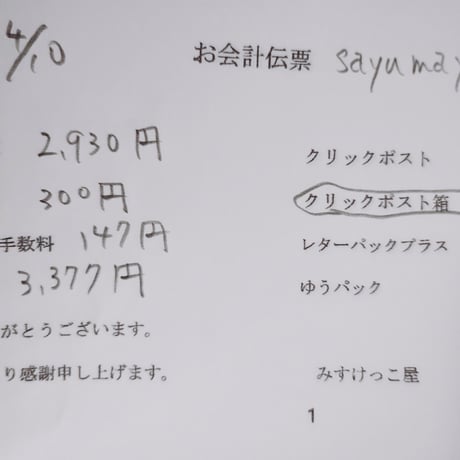 4/10 お会計伝票 sayumay
2,930円 クリックポスト
300円 クリックポスト箱
手数料 147円 レターパックプラス
3,377円 ゆうパック
がとうございます。
り感謝申し上げます。 みすけっこ屋
1